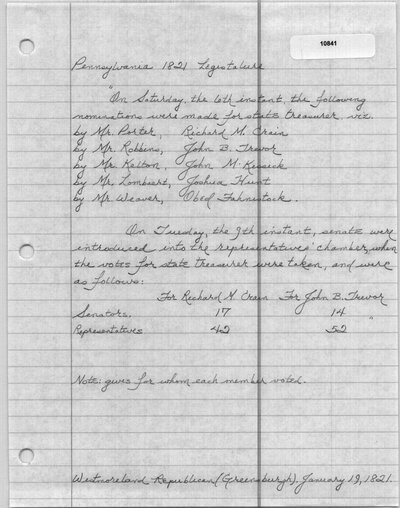 10841
Pennsylvania 1821 Legistature
"On Saturday, the 6th instant, the following
nominations were made for state treasurer viz.
by Mr. Porter, Richard M. Crain
by Mr. Robbins, John B. Trevor
by Mr. Kelton, John M. Kessick
by Mr. Lombert, Joshua Hunt
by Mr. Weaver, Obed Fahnistock.
On Tuesday, the 9th instant, senate were
introduced into the representatives' chamber, when
the votes for state treasurer were taken, and were
as follows:
For Richard M. Crain For John B. Trevor
Senators, 17 14
Representatives 42 52 "
Note: gives for whom each member voted.
Westmoreland Republican (Greensburgh), January 19, 1821.